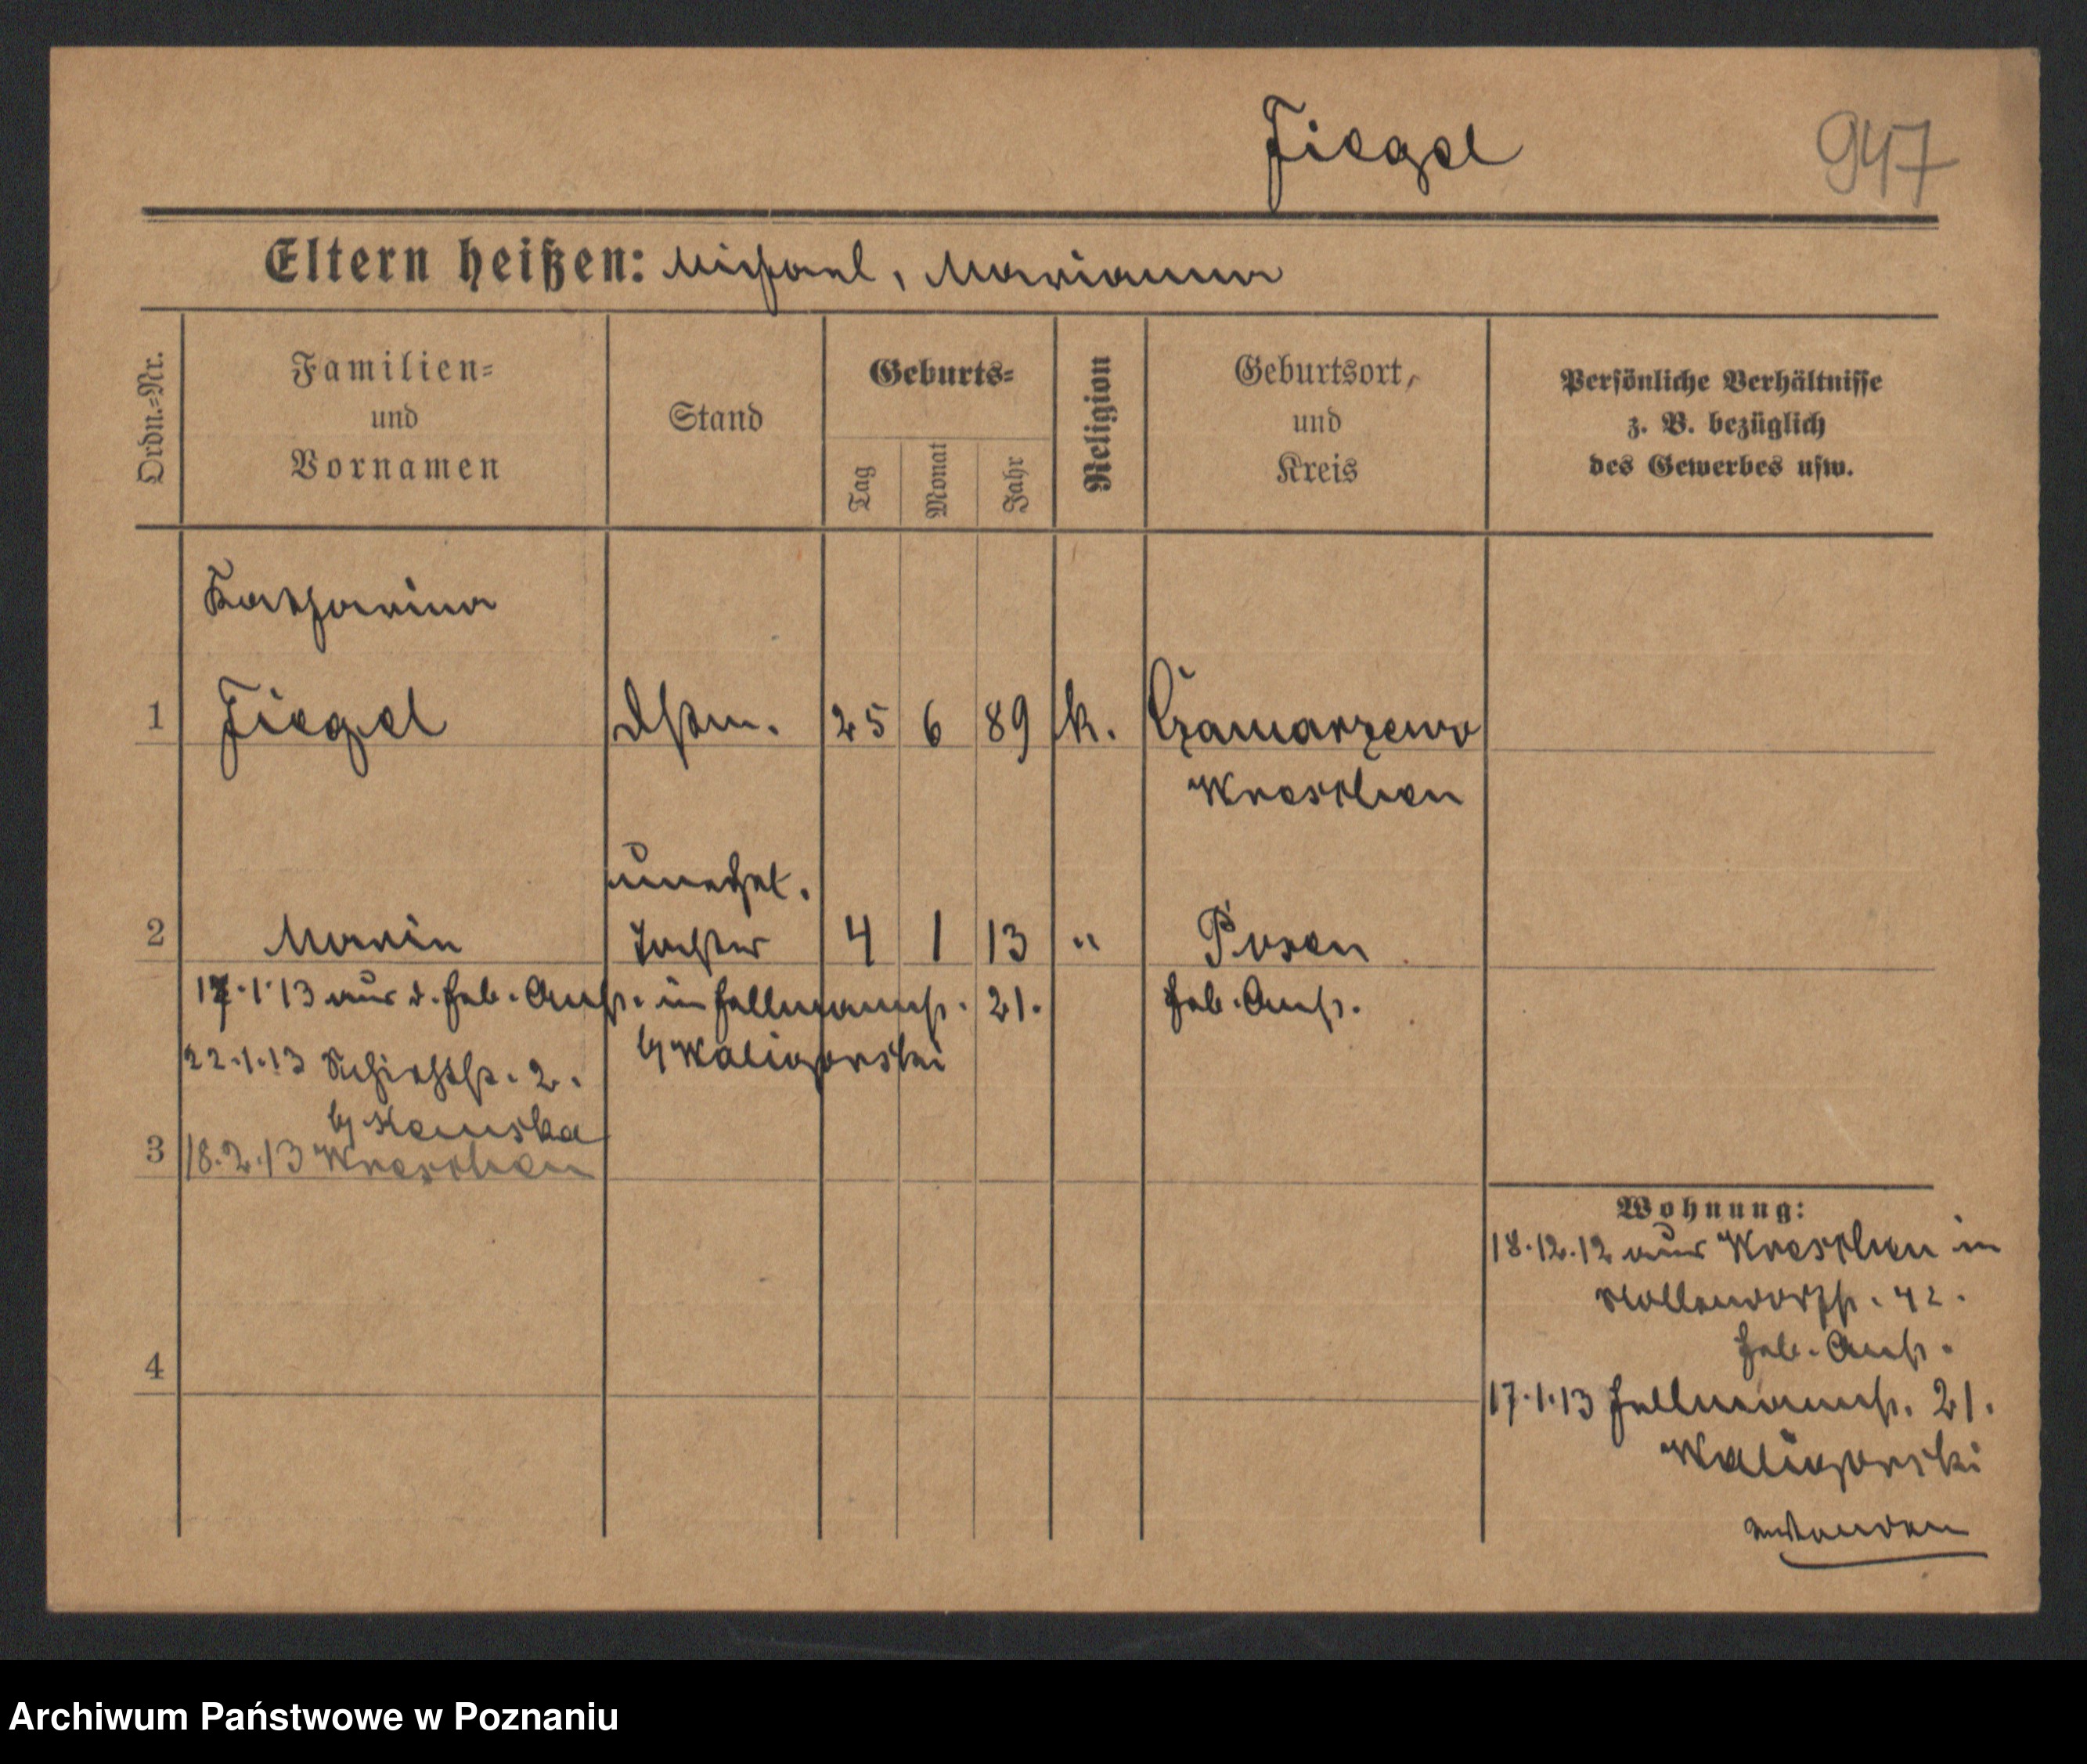 Fiegel
947
Eltern heißen: Michael, Marianna
Ordn.-Nr.
Familien-
und
Vornamen
Stand
Geburts-
Tag
Monat
Jahr
Religion
Geburtsort,
und
Kreis
Persönliche Verhältnisse
z. B. bezüglich
des Gewerbes usw.
Katharina
1 Fiegel Dstm. 25 6 89 k. Czamarzewo
Wreschen
unehel.
2 Maria Tochter 4 1 13 " Posen
17.1.13 aus d. Heb. Anst. in Hellmannstr. 21. Heb. Anst.
22.1.13 2. b/ Waligorski
b/
3 18.2.13 Wreschen
Wohnung:
18.12.12 aus Wreschen in
Nollendorfstr. 42.
Heb. Anst.
4
17.1.13 Hellmannstr. 21.
Waligorski